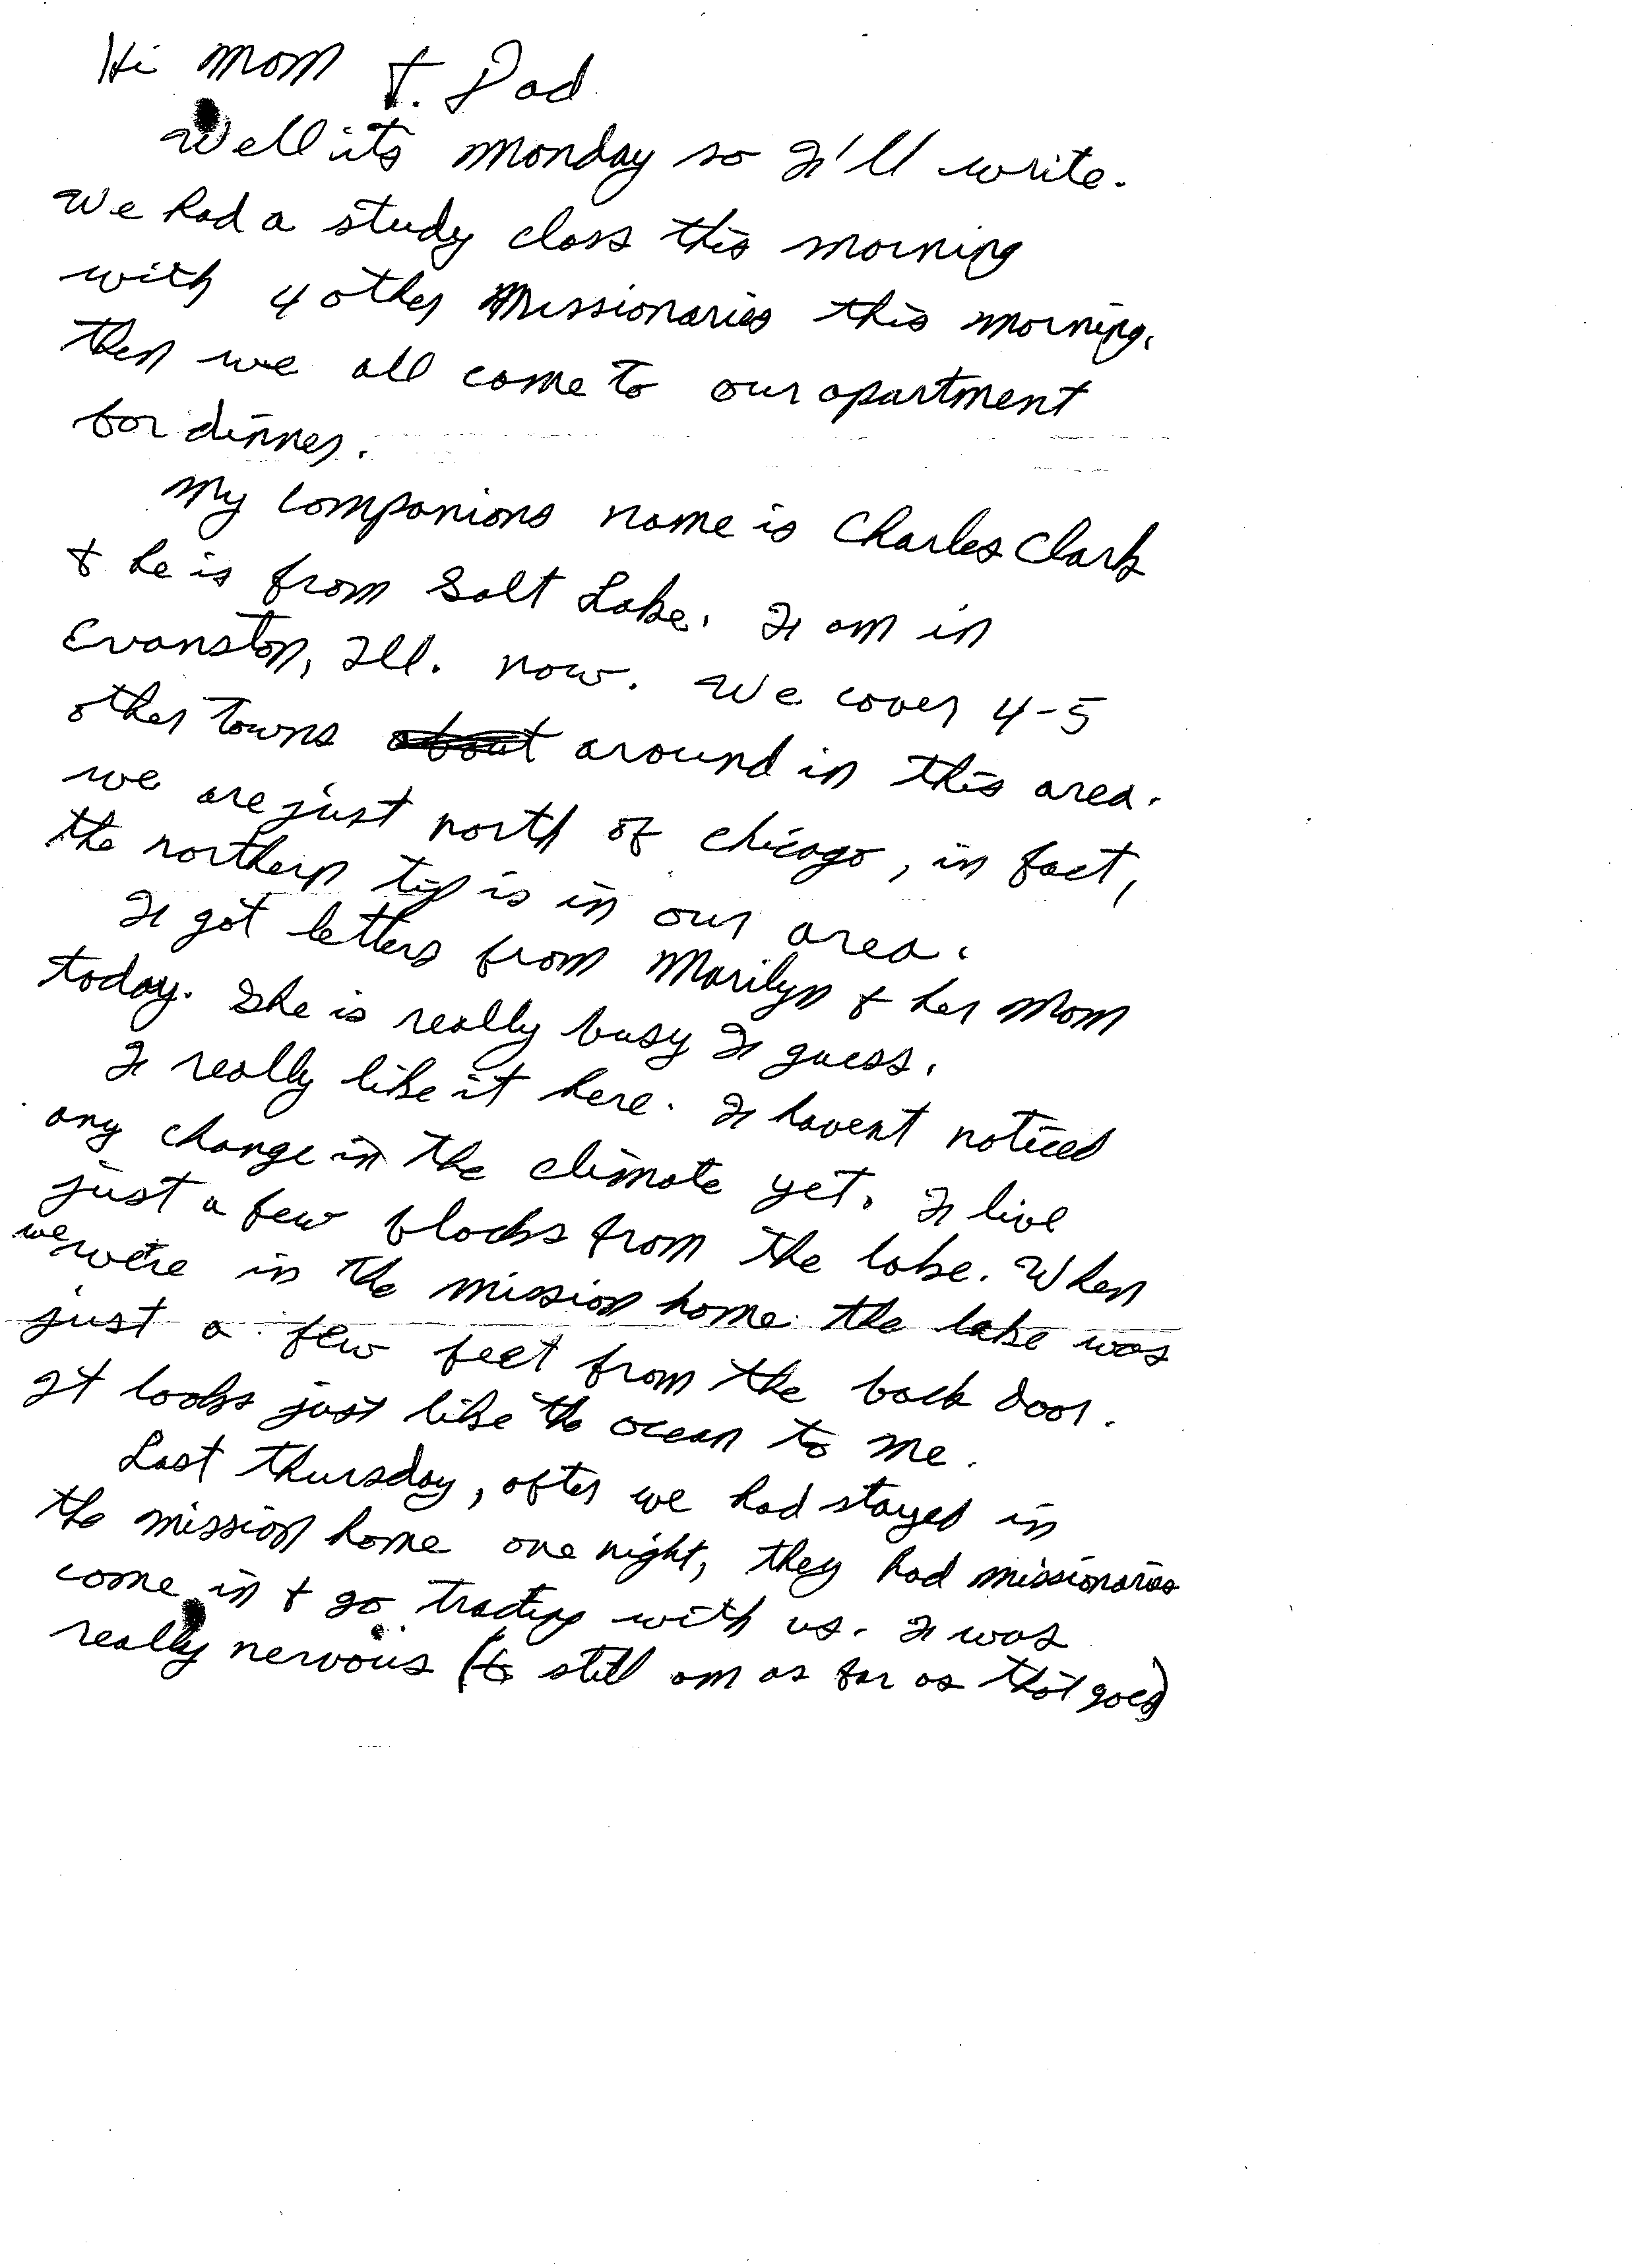 Hi Mom & Dad
Well its Monday so I'll write.
We had a study class this morning
with 4 other Missionaries this morning.
Then we all came to our apartment
for dinner.
My companions name is Charles Clark
& he is from Salt Lake. I am in
Evanston, Ill. now. We cover 4-5
other towns about around in this area.
we are just north of Chicago, in fact,
the northern tip is in our area.
I got letters from Marilyn & her Mom
today. She is really busy I guess.
I really like it here. I havent noticed
any change in the climate yet. I live
just a few blocks from the lake. When
we were in the mission home the lake was
just a few feet from the back door.
It looks just like the ocean to me.
Last Thursday, after we had stayed in
the mission home one night, they had missionaries
come in & go tracting with us. I was
really nervous ( still am as far as that goes)